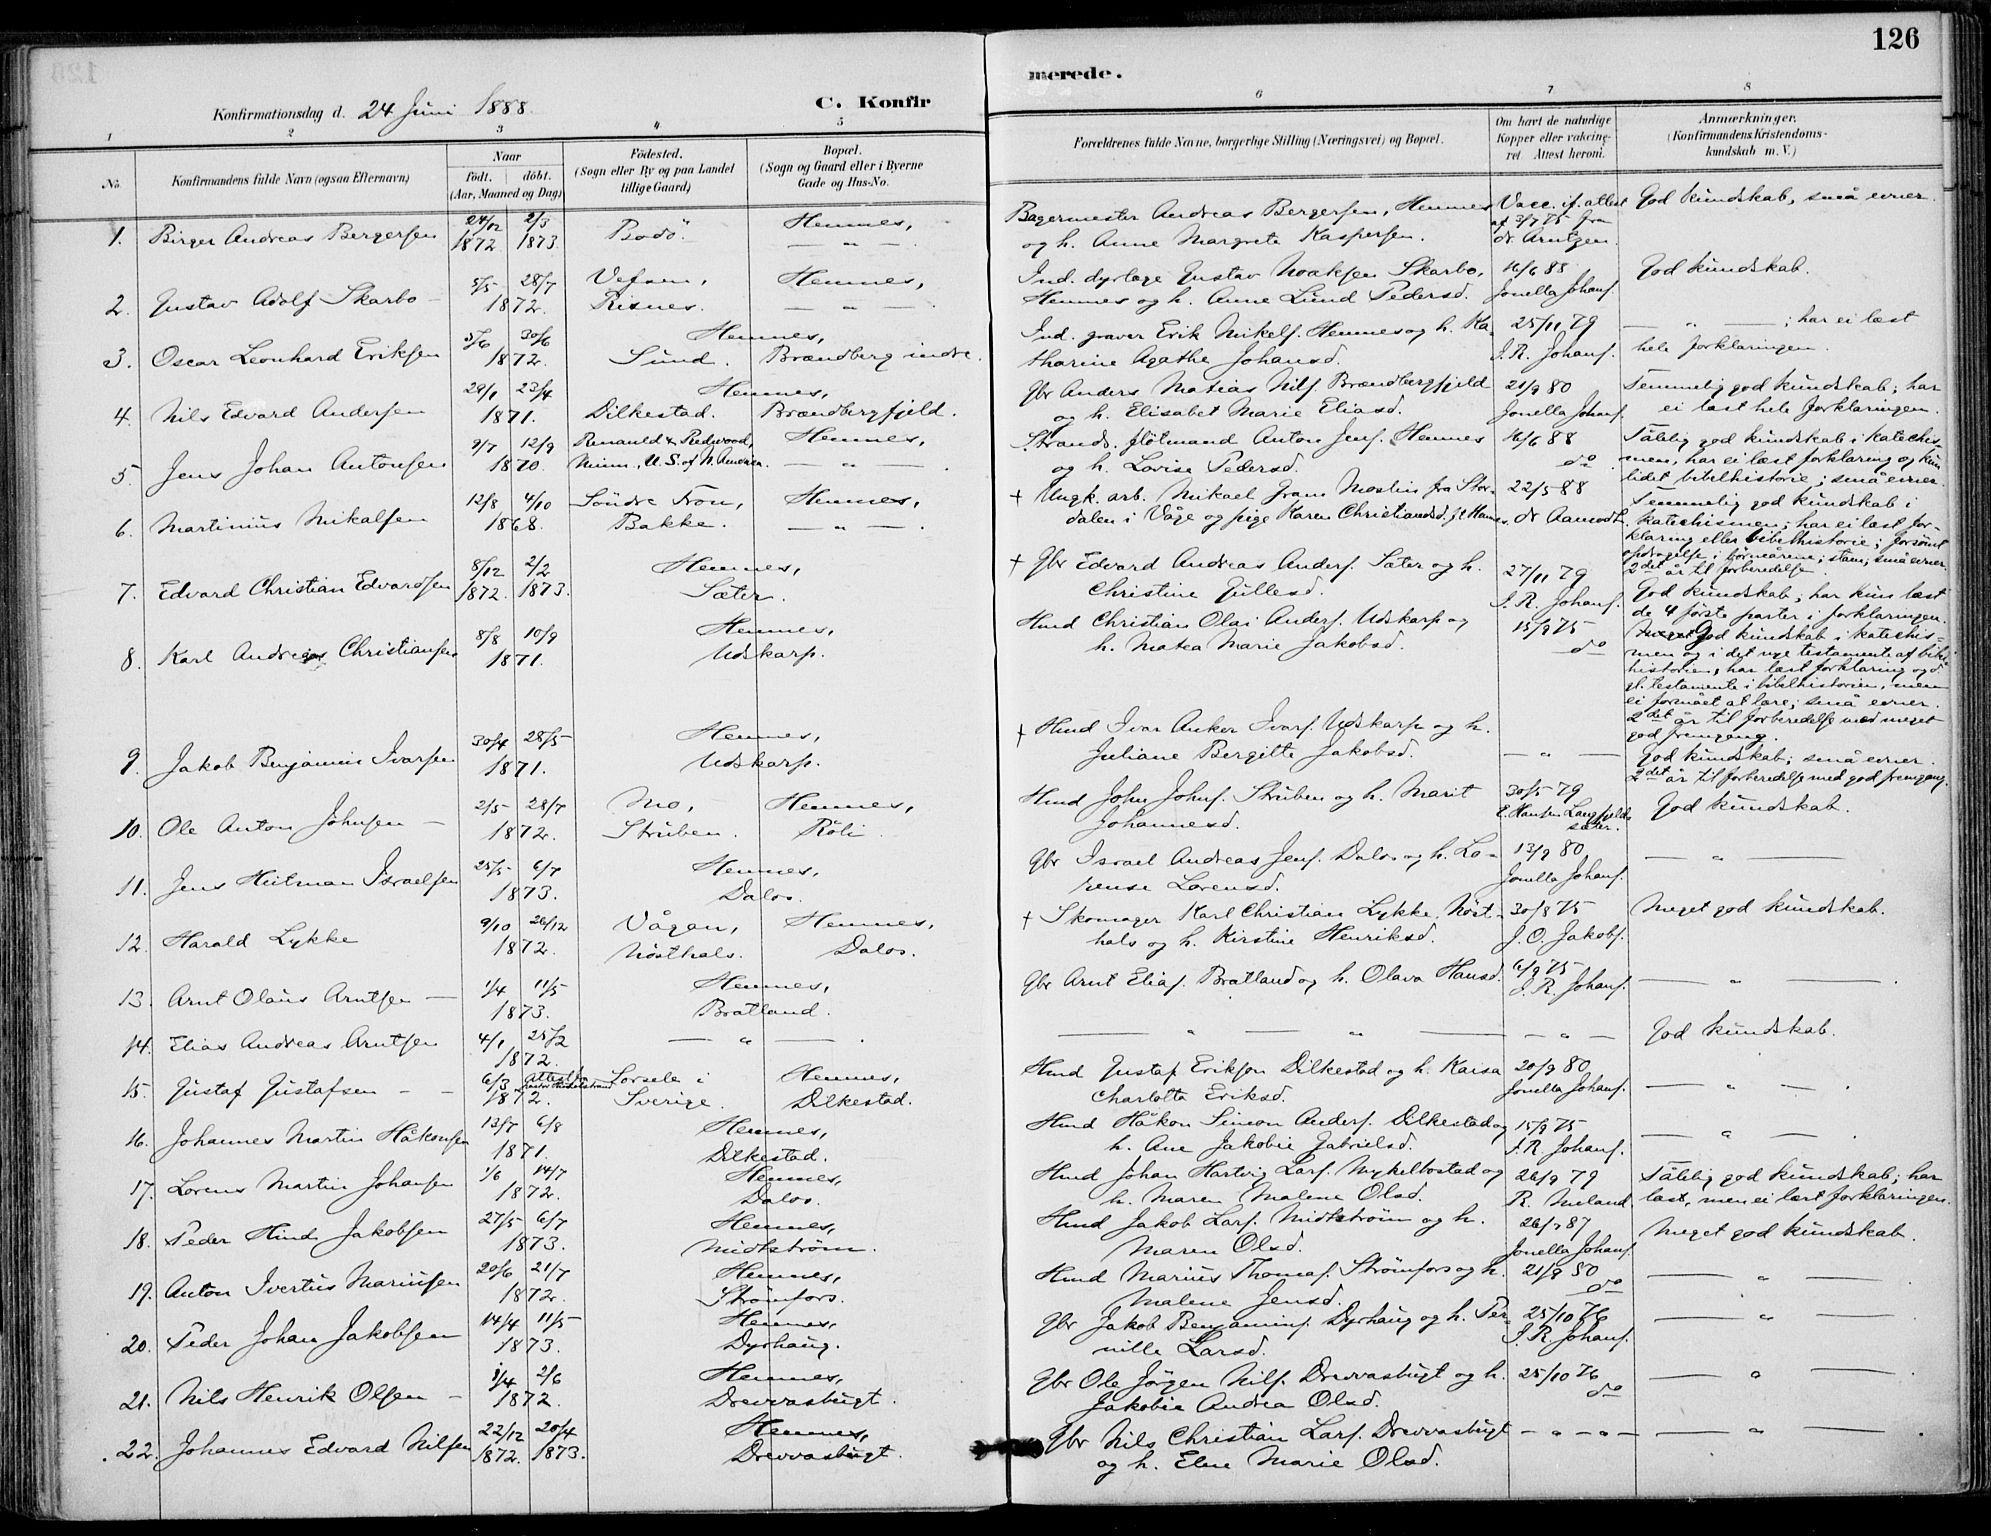 126
C. Konfirmerede.
Konfirmationsdag d. 24 Juni 1888.
1 2 3 4 5 6 7 8
No.
Konfirmandens fulde Navn (ogsaa Efternavn)
Naar
födt. döbt.
(Aar, Maaned og Dag)
Födested.
(Sogn eller By og paa Landet
tillige Gaard)
Bopæl.
(Sogn og Gaard eller i Byerne
Gade og Hus-No.
Forældrenes fulde Navne, borgerlige Stilling (Næringsvei) og Bopæl.
Om havt de naturlige
Kopper eller vakcine-
ret. Attest herom.
Anmærkninger.
(Konfirmandens Kristendoms-
kundskab m. V.)
1. Birger Andreas Bergersen 24/12 1872 2/3 1873. Bodö. Hemnes, — " —
Bagermester Andreas Bergersen, Hemnes
og h. Anne Margrete Kaspersen.
Vacc. if. attest
af 3/7 75 fra
dr Arntzen.
God kundskab, små evner.
2. Gustav Adolf Skarbo — 5/5 28/7 1872. Vefsen, Risnes. Hemnes, — " —
Ind. dyrlæge Gustav Noaksen Skarbo,
Hemnes og h. Anne Lund Pedersd.
16/6 88
Jonella Johans.
God kundskab.
3. Oscar Leonhard Eriksen 5/6 30/6 1872. Hemnes, Sund. Brændberg indre.
Ind. graver Erik Mikels. Hemnes og h. Ka-
tharine Agathe Johansd.
25/11 79
J. R. Johans.
— " — ; har ei læst
hele forklaringen.
4. Nils Edvard Andersen 29/1 23/4 1871. Hemnes, Dilkestad. Brændbergfjeld.
Gbr Anders Matias Nils. Brændbergfjeld
og h. Elisabet Marie Eliasd.
21/9 80
Jonella Johans.
Temmelig god kundskab; har
ei læst hele forklaringen.
5. Jens Johan Antonsen 9/7 12/9 1870. Renauld & Redwood,
Minn., U. S. of N. America. Hemnes, — " —
Strands. flötmand Anton Jens. Hemnes
og h. Lovise Pedersd.
16/6 88
do
Tålelig god kundskab i katechis-
men, har ei læst forklaring og kun
lidet bibelhistorie; små evner.
6. Martinus Mikalsen 12/8 4/10 1868. Söndre Fron, Bakke. Hemnes, — " —
+ Ungk. arb. Mikael Gram Mostin fra Stor-
dalen i Våge og pige Karen Christiansd.
22/5 88
dr Aamodt.
Temmelig god kundskab i
katechismen; har ei læst for-
klaring eller bibelhistorie; forsömt
opdragelse i börneårene; stam, små evner.
2det år til forberedelse.
7. Edvard Christian Edvardsen 8/12 1872. 2/2 1873. Hemnes, Sæter.
+ Gbr Edvard Andreas Anders. Sæter og h.
Christine Gullesd.
27/11 79
J. R. Johans.
God kundskab; har kun læst
de 4 förste parter i forklaringen.
8. Karl Andreas Christiansen 8/8 10/9 1871. Hemnes, Udskarp.
Hmd Christian Olai Anders. Udskarp og
h. Matea Marie Jakobsd.
15/9 75
do
God kundskab i katechis-
men og i det nye testamente af bibel-
historien; har læst forklaring og d.
gl. testamente i bibelhistorien, men
ei formået at lære; små evner.
2det år til forberedelse med meget
god fremgang.
9. Jakob Benjamin Ivarsen 30/4 28/5 1871. Hemnes, Udskarp.
+ Hmd Ivar Anker Ivars. Udskarp og h.
Juliane Bergitte Jakobsd.
— " —
God kundskab; små evner.
2det år til forberedelse med god fremgang.
10. Ole Anton Johnsen — 2/5 28/7 1872. Mo, Struben. Hemnes, Röli
Hmd John Johns. Struben og h. Marit
Johannesd.
30/5 79
E. Hansen Langfjeld-
sæter.
God kundskab.
11. Jens Hutman Israelsen 25/5 6/7 1873. Hemnes, Dalos.
Gbr Israel Andreas Jens. Dalos og h. Lo-
rense Lorensd.
13/9 80
Jonella Johans.
— " —
12. Harald Lykke 9/10 26/12 1872. Vågan, Nösthals. Hemnes, Dalos.
+ Skomager Karl Christian Lykke, Nöst-
hals og h. Kirstine Henriksd.
30/8 75
J. O. Jakobs.
Meget god kundskab.
13. Arnt Olaus Arntsen — 1/4 11/5 1873. Hemnes, Bratland.
Gbr Arnt Elias. Bratland og h. Olava Hansd.
6/9 75
J. R. Johans.
— " —
14. Elias Andreas Arntsen 4/1 25/2 1872. — " —
— " — " — — " —
God kundskab.
15. Gustaf Gustafsen — — 6/3 1872. Sorsele i Sverige. Hemnes, Dilkestad.
Hmd Gustaf Eriksen Dilkestad og h. Kaisa
Charlotta Eriksd.
20/9 80
Jonella Johans.
— " —
16. Johannes Martin Håkonsen 13/7 6/8 1871. Hemnes, Dilkestad.
Hmd Håkon Simon Anders. Dilkestad og
h. Ane Jakobie Gabrielsd.
15/9 75
J. R. Johans.
— " —
17. Lorens Martin Johansen 1/6 14/7 1872. Hemnes, Dalos.
Hmd Johan Hartvig Lars. Mykelbostad og
h. Maren Malene Olsd.
26/9 79
R. Meland.
Tålelig god kundskab; har
læst, men ei lært forklaringen.
18. Peder Hind Jakobsen 27/5 6/7 1873. Hemnes, Midtström.
Hmd Jakob Lars. Midtström og h.
Maren Olsd.
26/7 87
Jonella Johans.
Meget god kundskab.
19. Anton Ivertus Mariusen 20/6 21/7 1872. Hemnes, Strömfors.
Hmd Marius Thomas. Strömfors og h.
Malene Jensd.
21/9 80
do
— " —
20. Peder Johan Jakobsen 14/4 11/5 1873. Hemnes, Dyrhaug.
Gbr Jakob Benjamins. Dyrhaug og h. Per-
nille Larsd.
25/10 76
J. R. Johans.
— " —
21. Nils Henrik Olsen — 1/4 2/6 1872. Hemnes, Drevvasbugt.
Gbr Ole Jörgen Nils. Drevvasbugt og h.
Jakobie Andrea Olsd.
25/10 76
do
— " —
22. Johannes Edvard Nilsen 22/12 1872. 20/4 1873. Hemnes, Drevvasbugt.
Gbr Nils Christian Lars. Drevvasbugt
og h. Elne Marie Olsd.
— " — " —
— " —